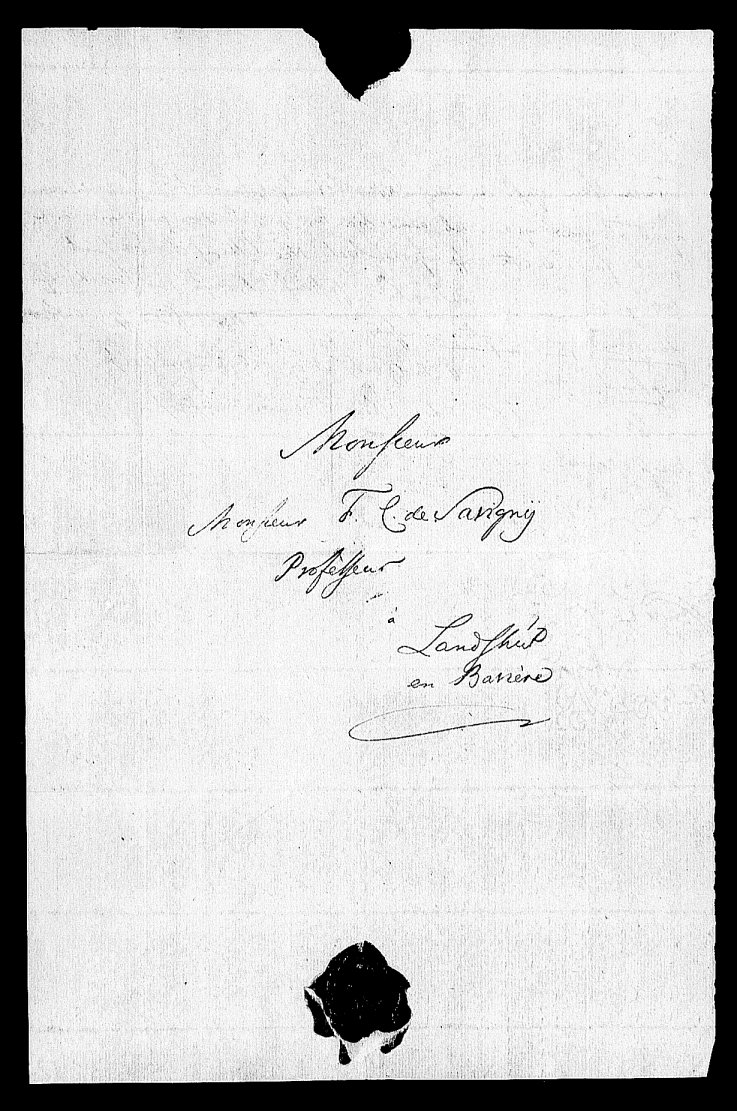 Monsieur
Monsieur F. C. de Savigny
Professeur
à
Landshut
en Bavière